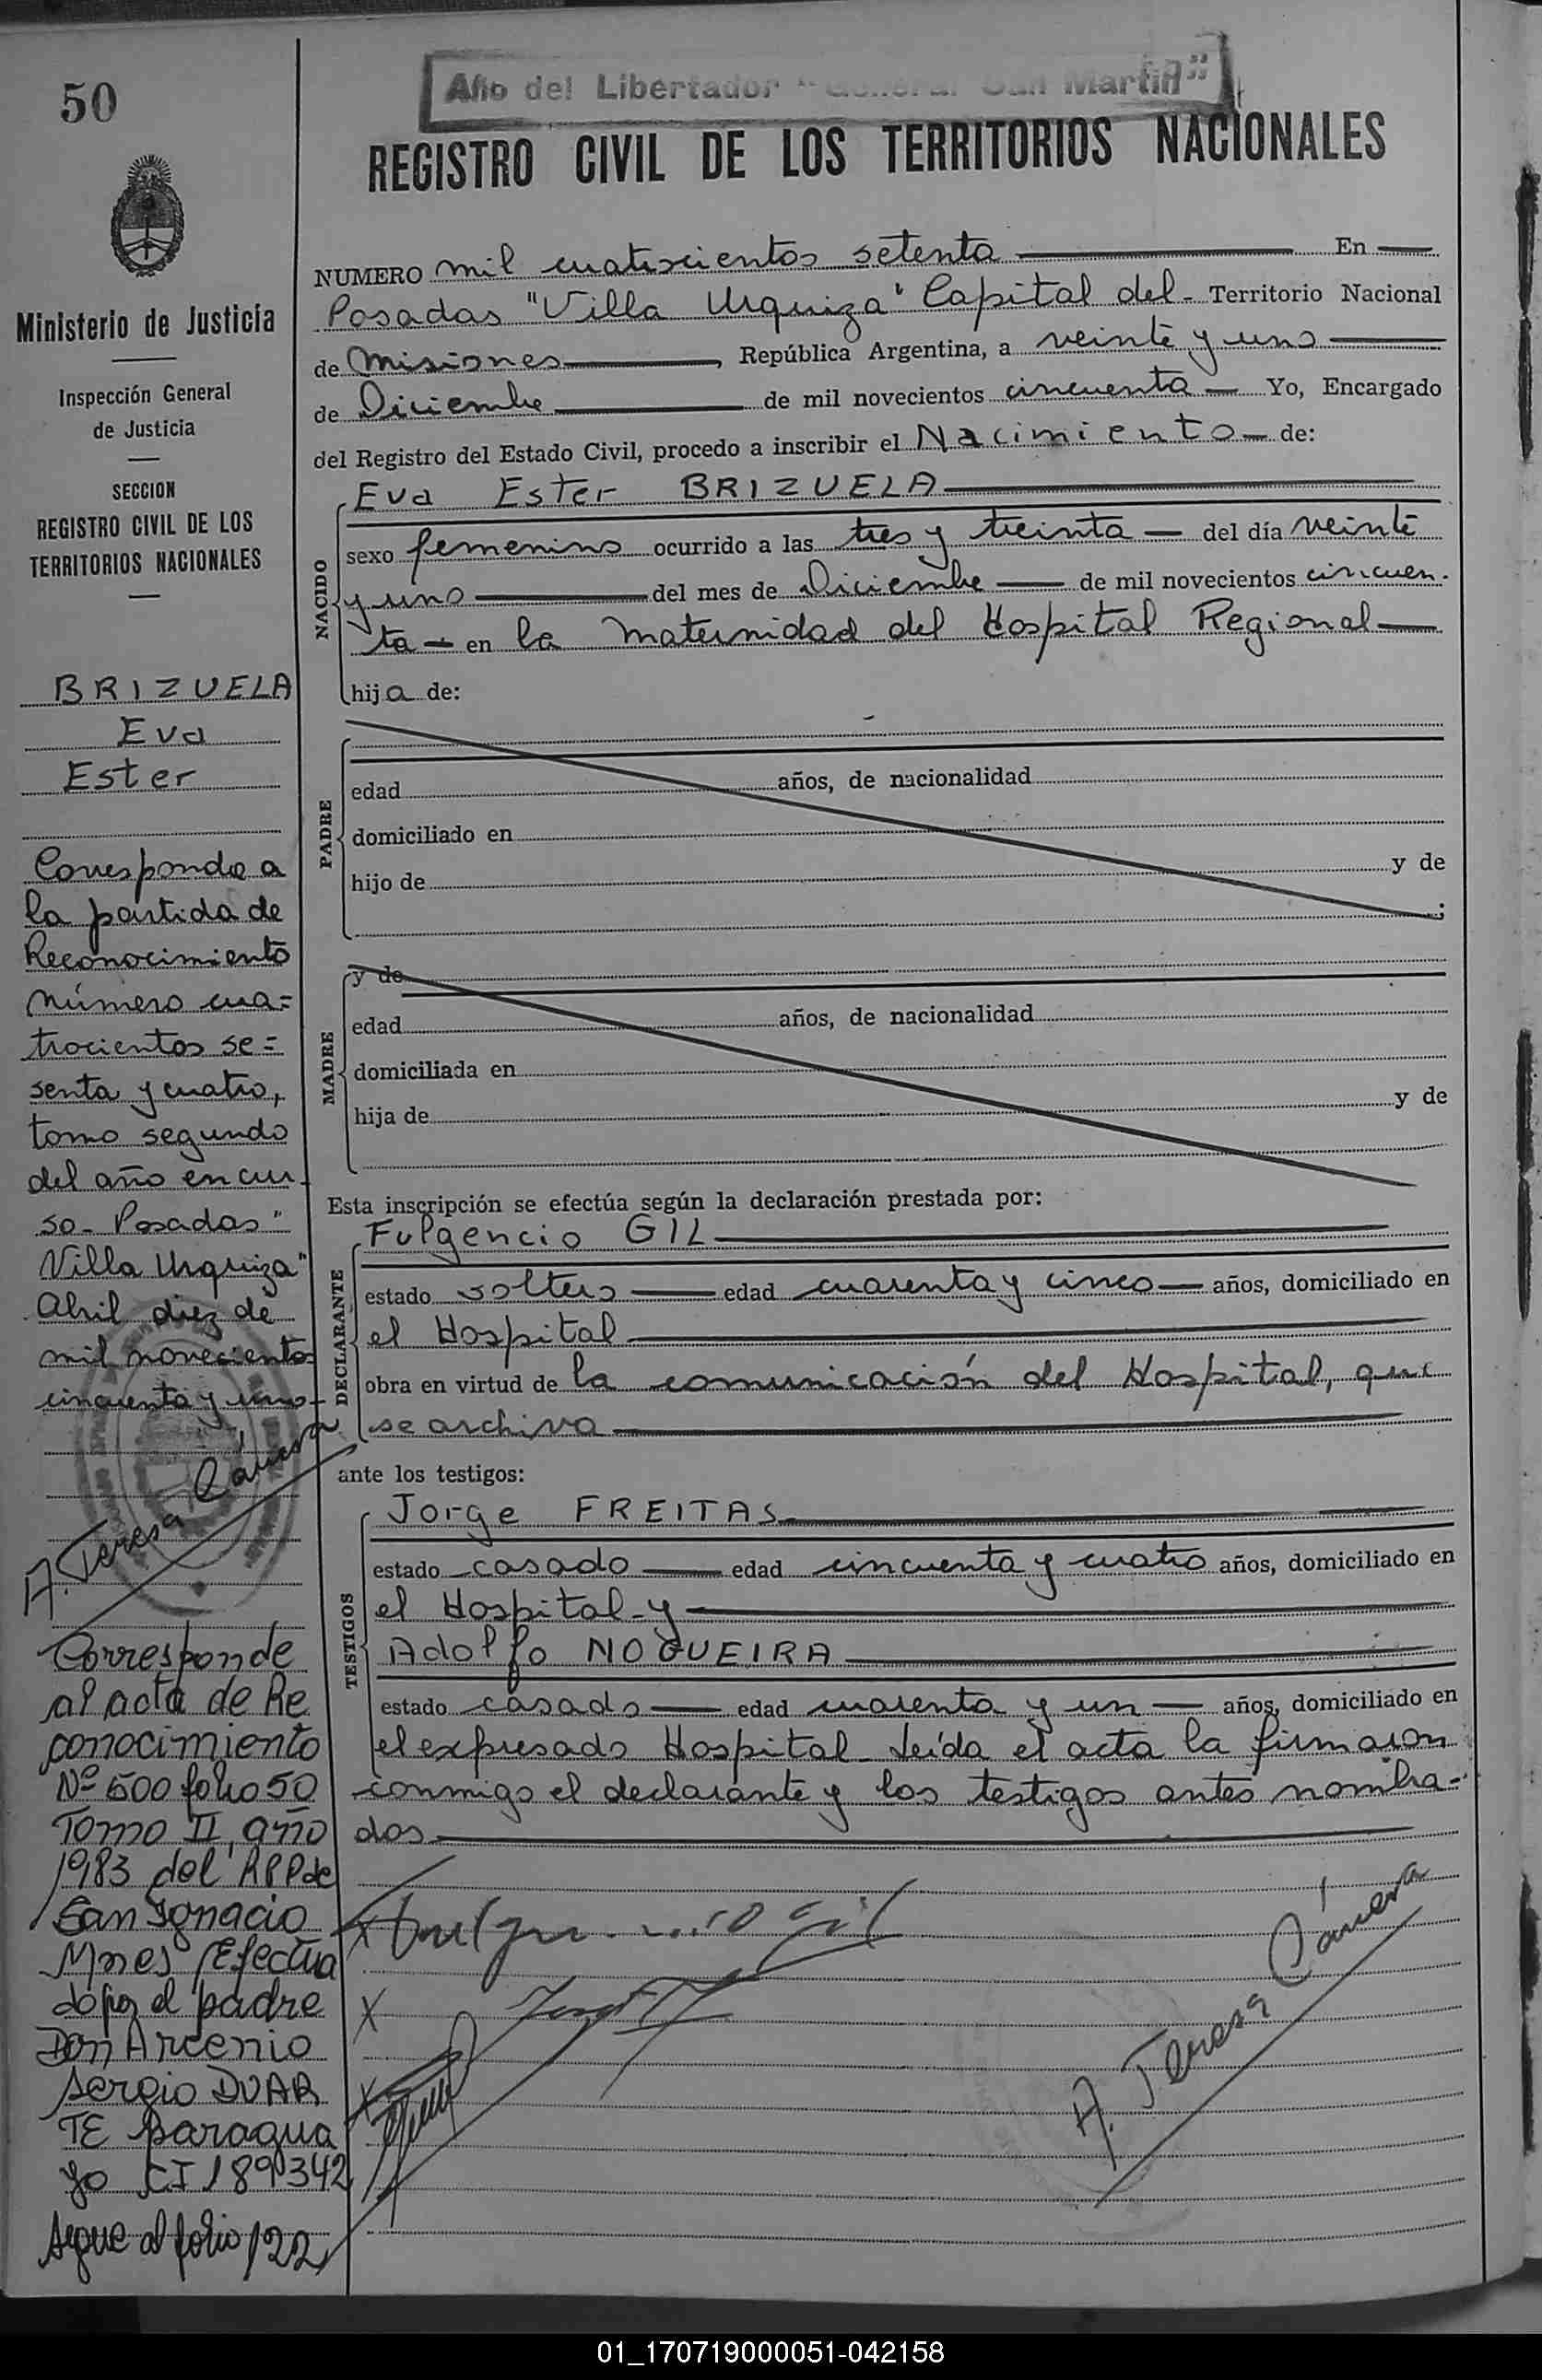 50
Año del Libertador "General San Martín"
REGISTRO CIVIL DE LOS TERRITORIOS NACIONALES
Ministerio de Justicia
Inspección General
de Justicia
SECCION
REGISTRO CIVIL DE LOS
TERRITORIOS NACIONALES
BRIZUELA
Eva
Ester
Corresponde a
la partida de
Reconocimiento
número cua=
trocientos se=
senta y cuatro,
tomo segundo
del año en cur-
so- Posadas "
Villa Urquiza"
Abril diez de
mil novecientos
cincuenta y uno-
A. Teresa Cánera
Corresponde
al acta de Re
conocimiento
Nº 500 folio 50
Tomo II, año
1983 del RPPde
San Ignacio
Mnes Efectua
do por el padre
Don Arcenio
Sergio DUAR
TE paragua
yo CI 189342
Sigue al folio 122
NUMERO mil cuatrocientos setenta En
Posadas "Villa Urquiza" Capital del- Territorio Nacional
de Misiones, República Argentina, a veinte y uno
de Diciembre de mil novecientos cincuenta Yo, Encargado
del Registro del Estado Civil, procedo a inscribir el Nacimiento de:
NACIDO
Eva Ester BRIZUELA
sexo femenino ocurrido a las tres y treinta del día veinte
y uno del mes de Diciembre de mil novecientos cincuen-
ta en la maternidad del Hospital Regional
hija de:
PADRE
edad años, de nacionalidad
domiciliado en
hijo de y de
;
MADRE
y de
edad años, de nacionalidad
domiciliada en
hija de y de
Esta inscripción se efectúa según la declaración prestada por:
DECLARANTE
Fulgencio GIL
estado soltero edad cuarenta y cinco años, domiciliado en
el Hospital
obra en virtud de la comunicación del Hospital, que
se archiva
ante los testigos:
TESTIGOS
Jorge FREITAS
estado casado edad cincuenta y cuatro años, domiciliado en
el Hospital- y
Adolfo NOGUEIRA
estado casado edad cuarenta y un años, domiciliado en
el expresado Hospital- Leída el acta la firmaron
conmigo el declarante y los testigos antes nombra=
dos
x Fulgencio Gil
x
x
A. Teresa Cánera
01_170719000051-042158